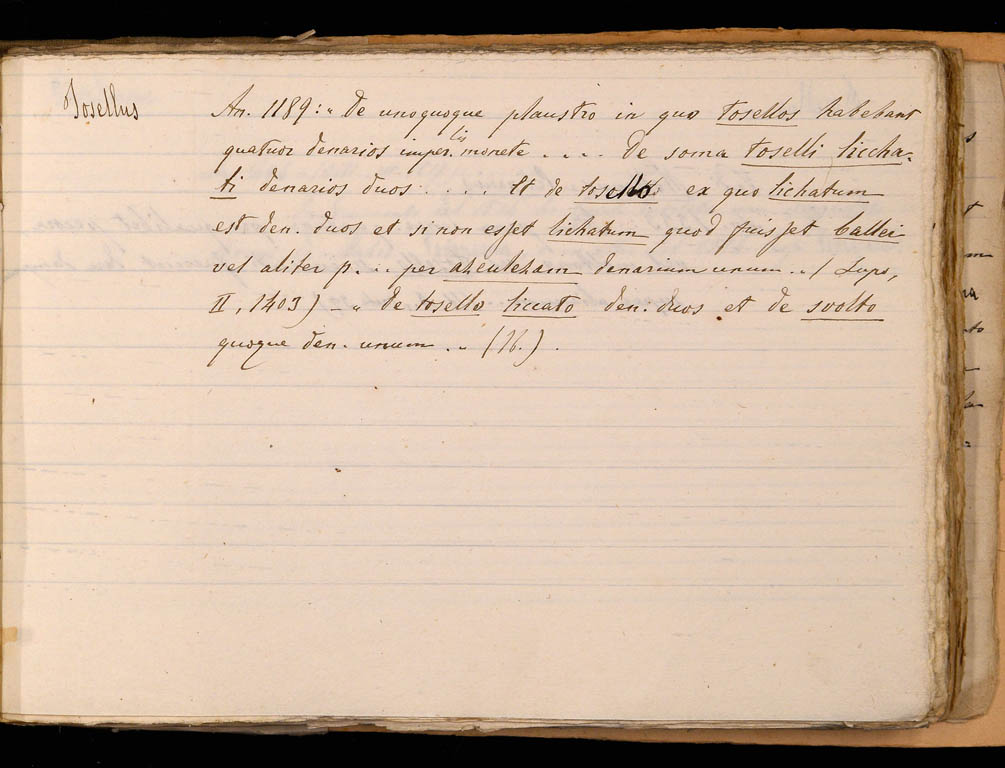 Tosellus
An. 1189: „ De unoquoque plaustro in quo tosellos habebant
quatuor denarios imper.lis monete .... De soma toselli liccha-
ti denarios duos ..... Et de tosello ex quo lichatum
est den. duos et si non esset lichatum quod fuisset ballei
vel aliter p... per denarium unum .. ( Lupo,
II, 1403) - „ de tosello liccato den. duos et de svolto
quoque den. unum .. (Ib.) .